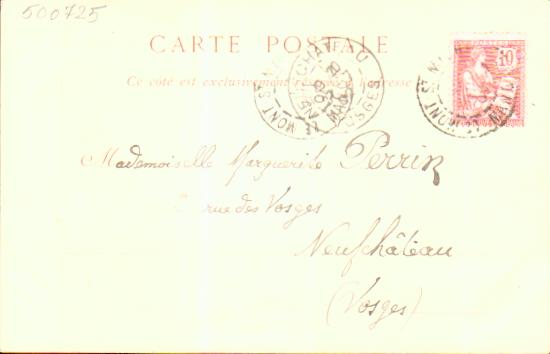 500725
CARTE POSTALE
Ce côté est exclusivement réservé à l'adresse
POSTES
10
NEUFCHATEAU
VOSGES
LE MONT
Mademoiselle Marguerite Perrin
rue des Vosges
Neufchâteau
(Vosges)